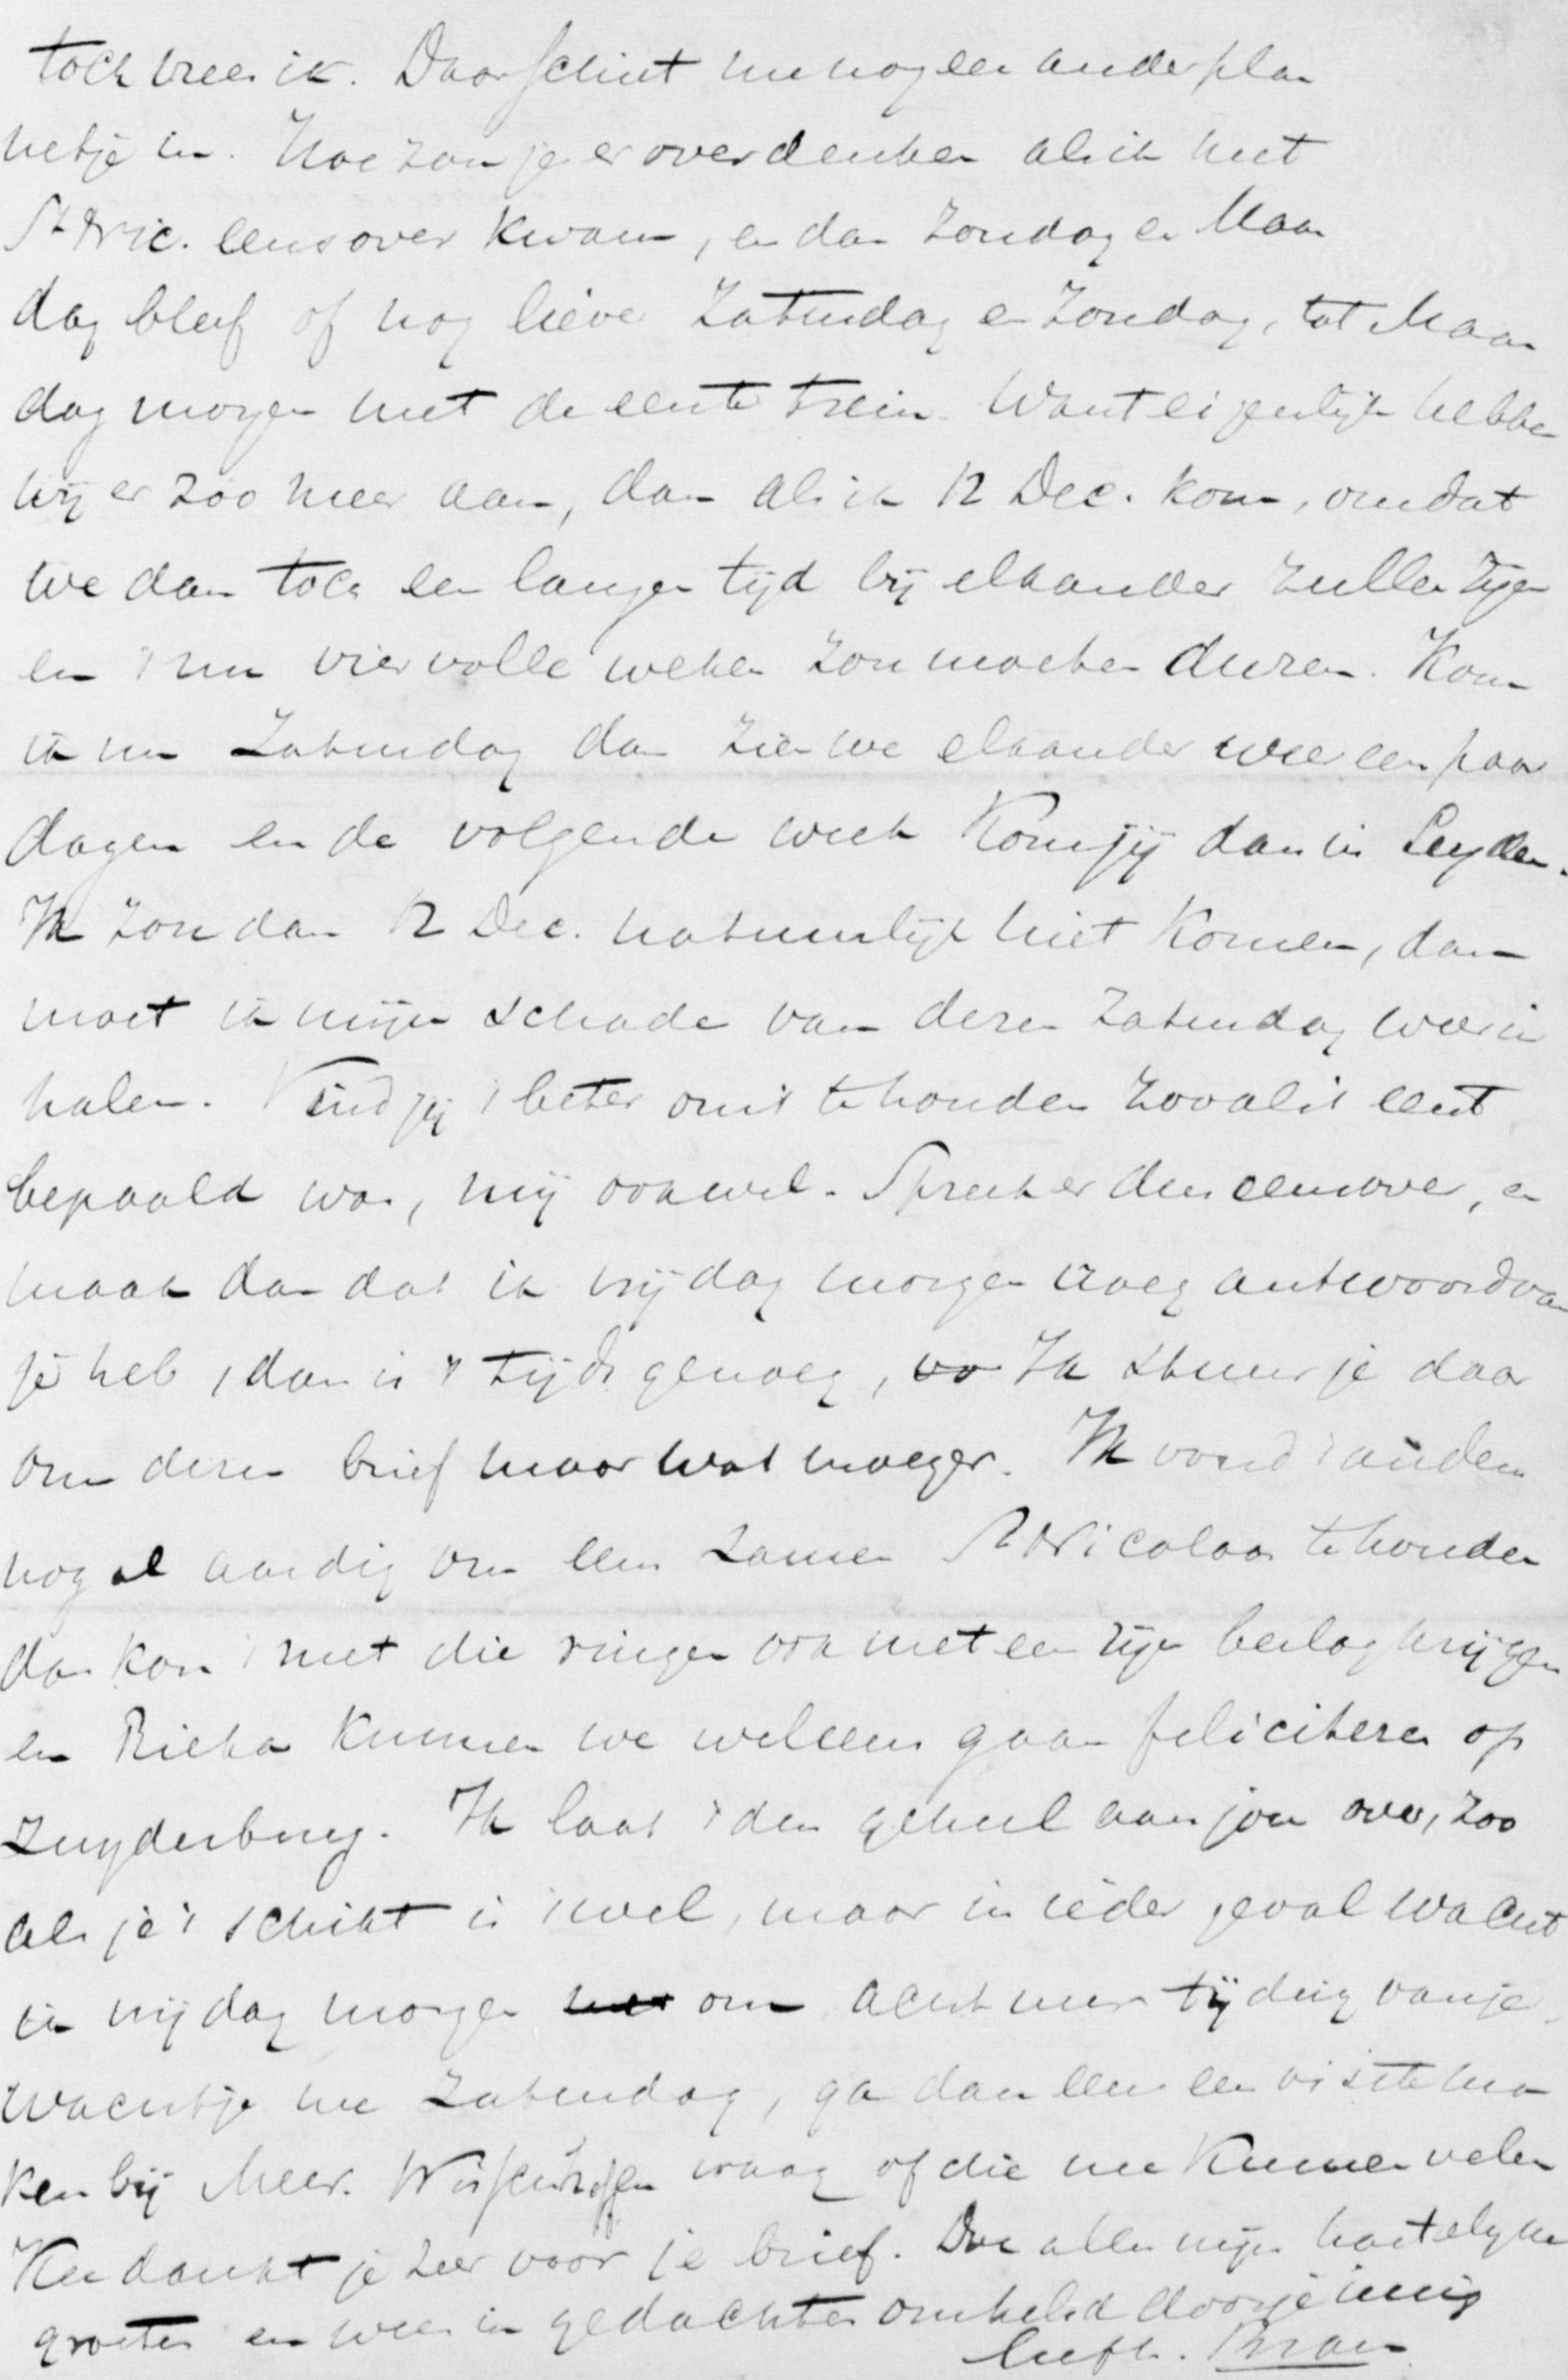 toch vrees ik. Daar schiet me nog een ander plan
netje in. Hoe zou je er over denken als ik met
St Nic. eens over kwam, en dan Zondag en Maan
dag bleef of nog liever Zaturdag en Zondag, tot Maan
dag morgen met de eerste trein. Want eigenlijk hebben
wij er zoo meer aan, dan als ik 12 Dec. kom, omdat
we dan toch een langen tijd bij elkander zullen zijn
en 't nu vier volle weken zou moeten duren. Kom
ik nu Zaturdag dan zien we elkander weer een paar
dagen en de volgende week kom jij dan in Leyden.
Ik zou dan 12 Dec. natuurlijk niet komen, dan
moet ik mijn schade van dezen Zaturdag weer in
halen. Vind jij 't beter om 't te houden zooals 't eerst
bepaald was, mij ook wel. Spreek er dus eens over, en
maak dan dat ik vrijdag morgen vroeg antwoord van
je heb, dan is 't tijds genoeg, Ik stuur je daar
om dezen brief maar wat vroeger. Ik vond 't anders
nog al aardig om eens samen St Nicolaas te houden
dan kan 't met die ringen ook meteen zijn beslag krijgen
en Rieka kunnen we wel eens gaan feliciteren op
Zuyderburg. Ik laat 't dus geheel aan jou over, zoo
als je 't schikt is 't wel, maar in ieder geval wacht
ik vrijdag morgen om acht uur tijding van je.
Wacht je me Zaturdag, ga dan eens een visite ma
ken bij Mevr. vraag of die me kunnen velen
Kee dankt je zeer voor je brief. Doe allen mijn hartelyke
groeten en wees in gedachten omhelsd door je innig
liefh. Bram